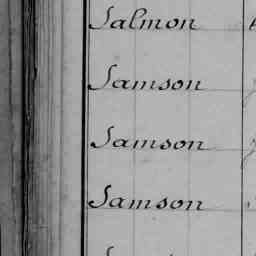 Salmon
Samson
Samson
Samson